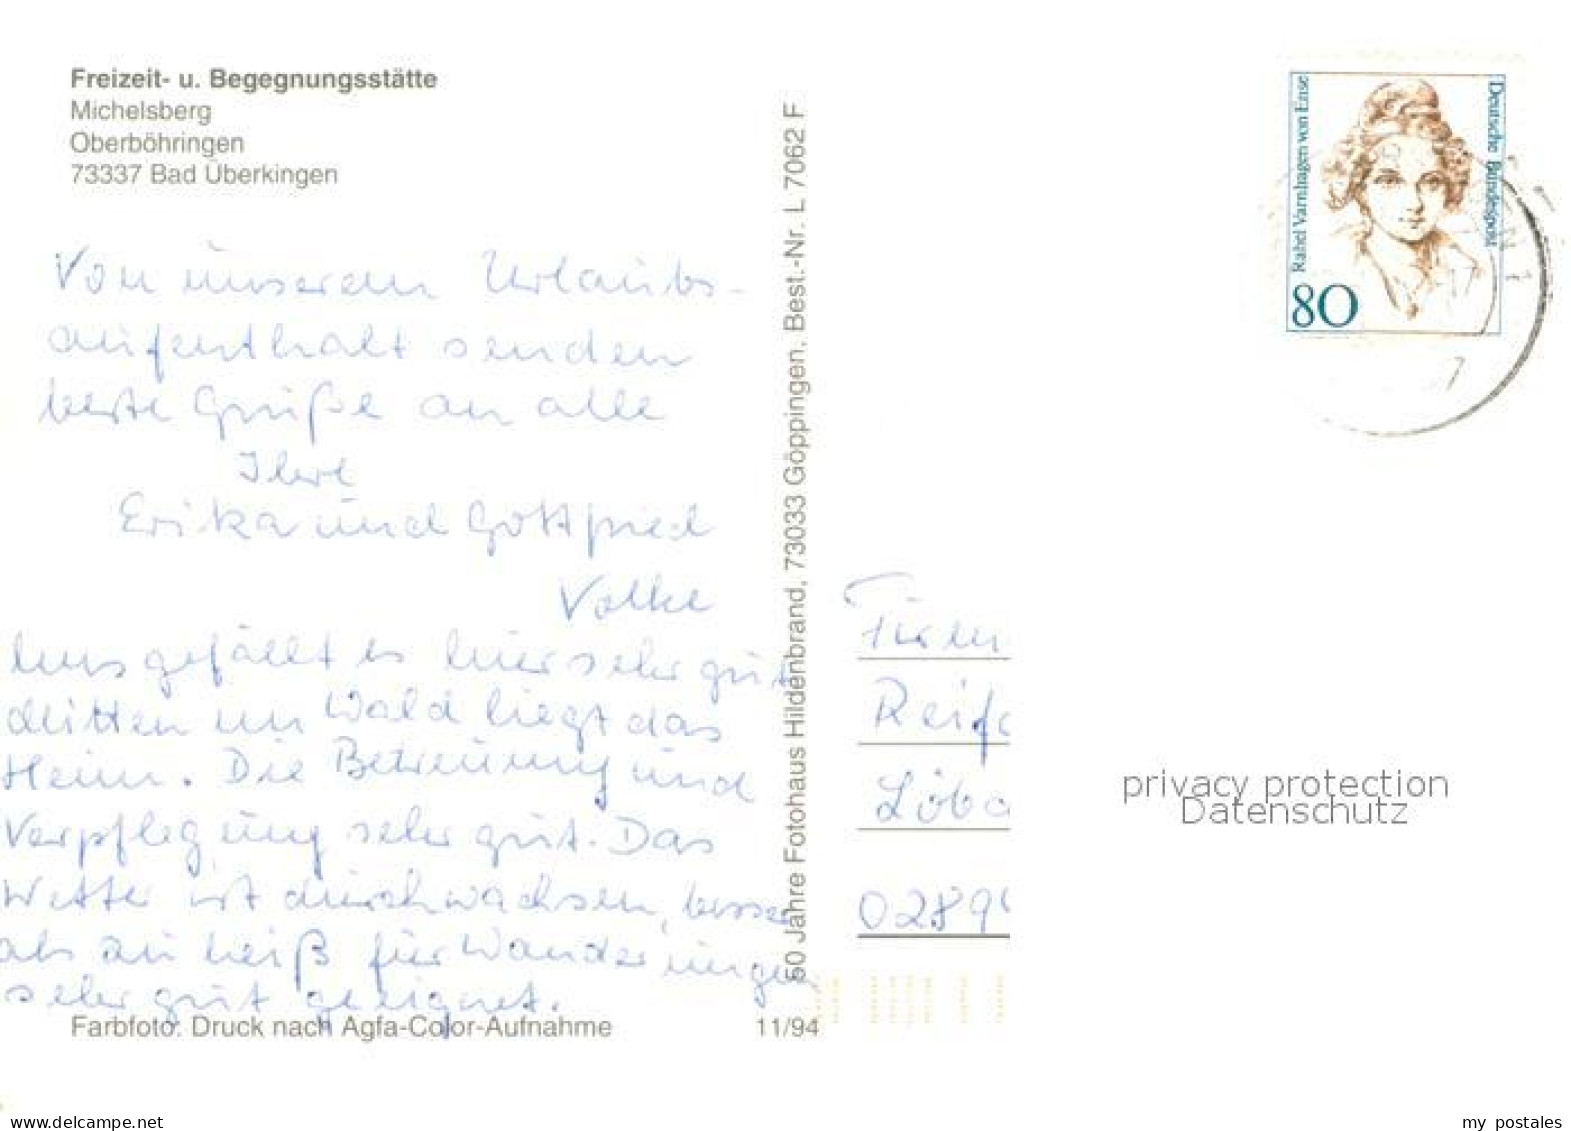 Freizeit- u. Begegnungsstätte
Michelsberg
Oberböhringen
73337 Bad Überkingen
Von unserem Urlaubs-
aufenthalt senden
beste Grüße an alle
Ihre
Erika und Gottfried
Volke
Uns gefällt es hier sehr gut
Mitten im Wald liegt das
Heim. Die Betreuung und
Verpflegung sehr gut. Das
Wetter ist durchwachsen, besser
als zu heiß für Wanderungen
sehr gut geeignet.
Farbfoto: Druck nach Agfa-Color-Aufnahme
11/94
50 Jahre Fotohaus Hildenbrand, 73033 Göppingen, Best.-Nr. L 7062 F
Rahel Varnhagen von Ense
Deutsche Bundespost
80
Reif
Löba
0289
privacy protection
Datenschutz
www.delcampe.net
my_postales